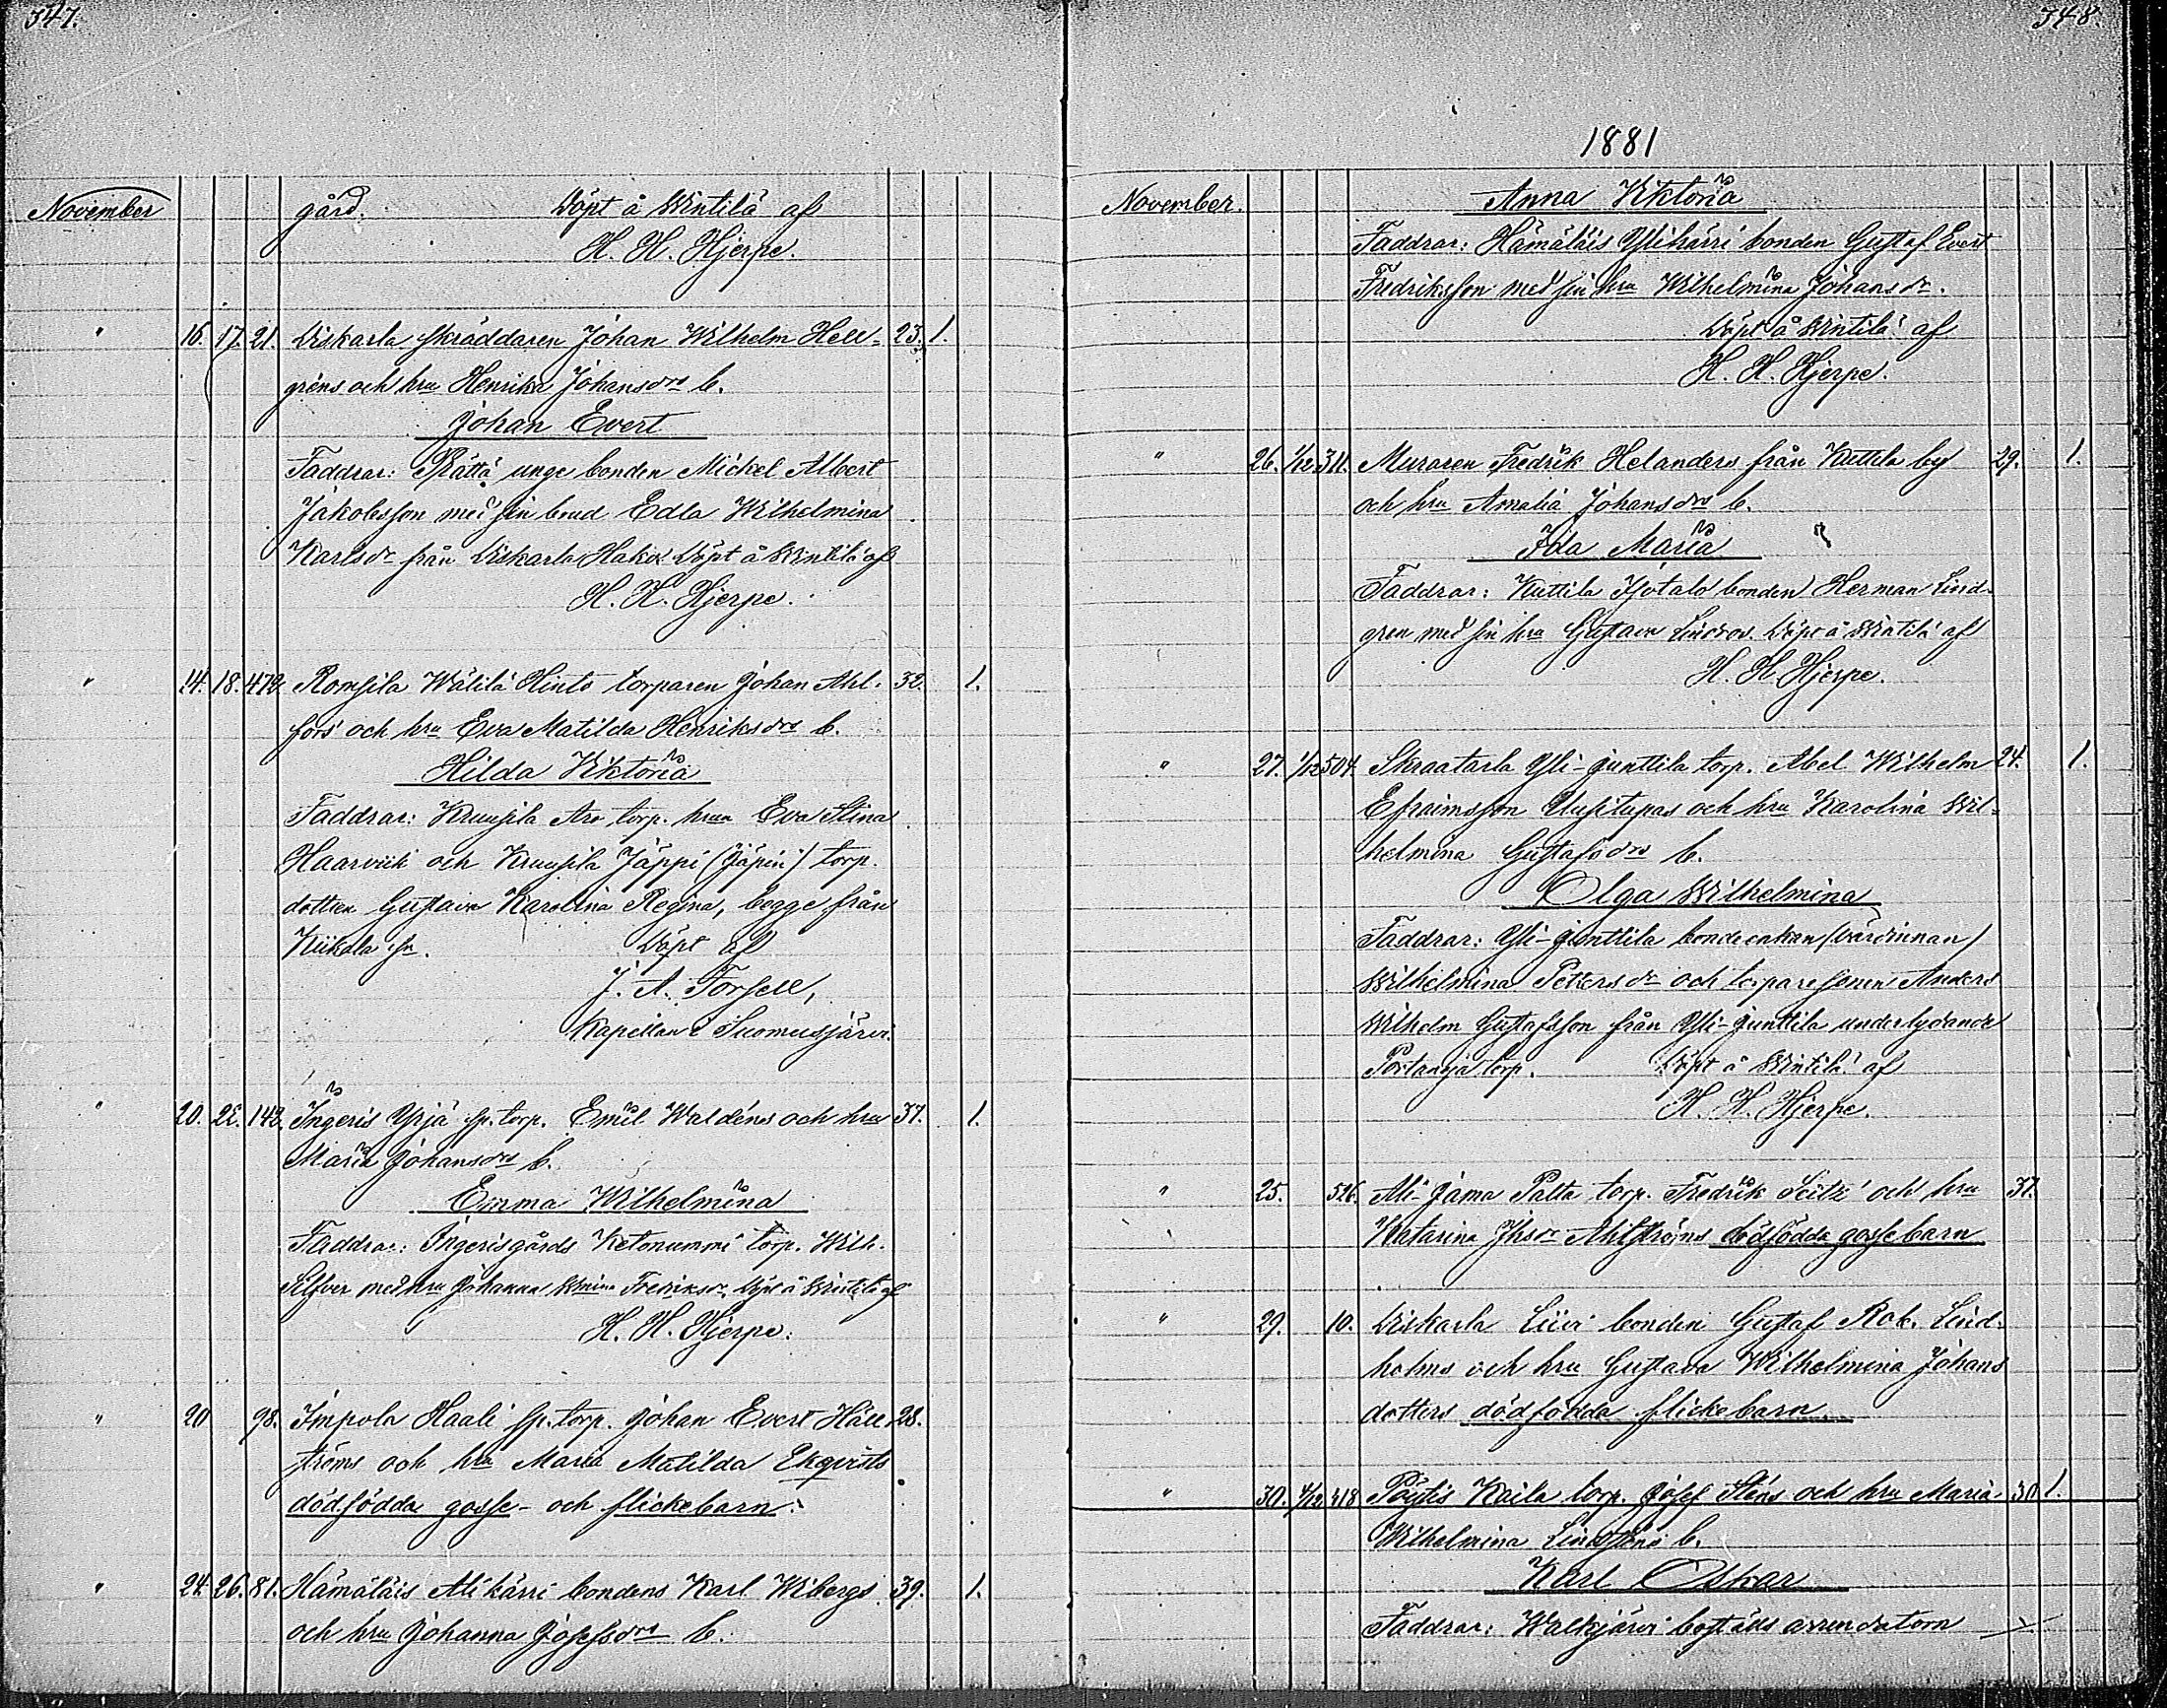 347.
November gård. Döpt å Wintilä af
H. H. Hjerpe.
" 16. 17. 21. Diskarla skräddaren Johan Wilhelm Hell- 23. 1.
gréns och hru Henrika Johansdrs b.
Johan Evert
Faddrar: Prättä unge bonden Mickel Albert
Jakobsson med sin brud Edla Wilhelmina
Karlsdr från Diskarla Hakoi. Döpt å Wintilä af
H. H. Hjerpe.
" 14. 18. 479. Romsila Wälilä Hinto torparen Johan Ahl- 32. 1.
fors och hru Eva Matilda Henriksdrs b.
Hilda Viktoria
Faddrar: Kruusila Aro torp. hrun Eva Stina
Haarviik och Kruusila Jäppi (Jäpin) torp.
dottren Gustava Karolina Regina, begge från
Kiikala sn. Döpt af
J. A. Forsell,
Kapellan i Suomusjärvi.
" 20. 22. 142. Ingeris Yrjä sp. torp. Emil Waldéns och hru 37. 1.
Maria Johansdrs b.
Emma Wilhelmina
Faddrar: Ingerisgårds Ketonummi torp. Wilh.
Silfver med hru Johanna Wmina Fredriksdr. Döpt å Wintilä af
H. H. Hjerpe.
" 20 98. Impola Haali sp. torp. Johan Evert Häll- 28.
ströms och hru Maria Matilda Ekqvists
dödfödda gosse- och flickebarn.
" 24. 26. 81. Hämäläis Alikärri bondens Karl Wibergs 39. 1.
och hru Johanna Josefsdrs b.
348.
1881
November. Anna Viktoria
Faddrar: Hämäläis Ylikärri bonden Gustaf Evert
Fredriksson med sin hru Wilhelmina Johansdr.
Döpt å Wintilä af
H. H. Hjerpe.
" 26. 1/12 311. Muraren Fredrik Helanders från Kuttila by 29. 1.
och hru Amalia Johansdrs b.
Ida Maria
Faddrar: Kuttila Isotalo bonden Herman Lind-
gren med sin hru Gustava Lindros. Döpt å Wintilä af
H. H. Hjerpe.
" 27. 1/12 504. Skraatarla Yli-Junttila torp. Abel Wilhelm 24. 1.
Efraimsson Uusitupas och hru Karolina Wil-
helmina Gustafsdrs b.
Olga Wilhelmina
Faddrar: Yli-Junttila bondeenkan (värdinnan)
Wilhelmina Petersdr och torparesonen Anders
Wilhelm Gustafsson från Yli-Junttila underlydande
Portanoja torp. Döpt å Wintilä af
H. H. Hjerpe.
" 25. 526. Ali-Jama Palta torp. Fredrik Seitz' och hru 37.
Katarina Jhsdr Ahlströms dödfödda gossebarn
" 29. 10. Diskarla Liivi bonden Gustaf Rob. Lind-
holms och hru Gustava Wilhelmina Johans
dotters dödfödda flickebarn.
" 30. 4/12 418 Pöytis Kaila torp. Josef Sténs och hru Maria 30. 1.
Wilhelmina Lindsténs b.
Karl Oskar
Faddrar: Walkjärvi boställs arrendatorn